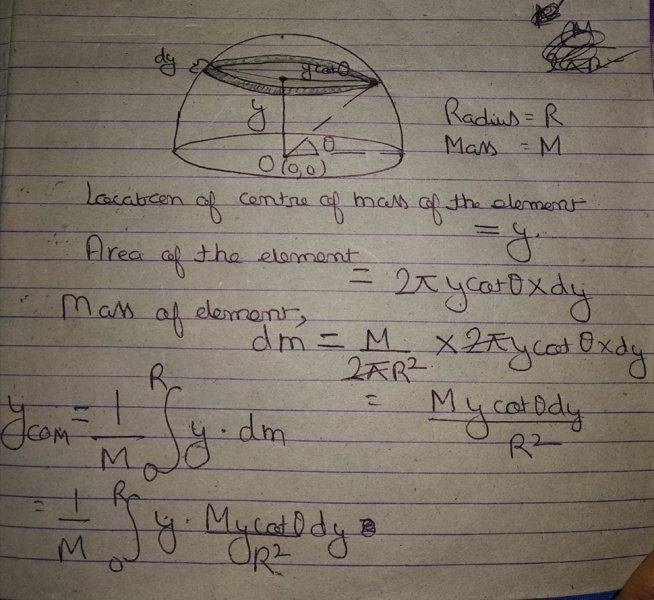 dy
y cotθ
y
θ
O(0,0)
Radius = R
Mass = M
Location of centre of mass of the element
= y.
Area of the element
= 2π y cotθ × dy
Mass of element,
dm = M/2πR² × 2π y cotθ × dy
= M y cotθ dy / R²
y_COM = 1/M ∫₀ᴿ y · dm
= 1/M ∫₀ᴿ y · M y cotθ dy / R²